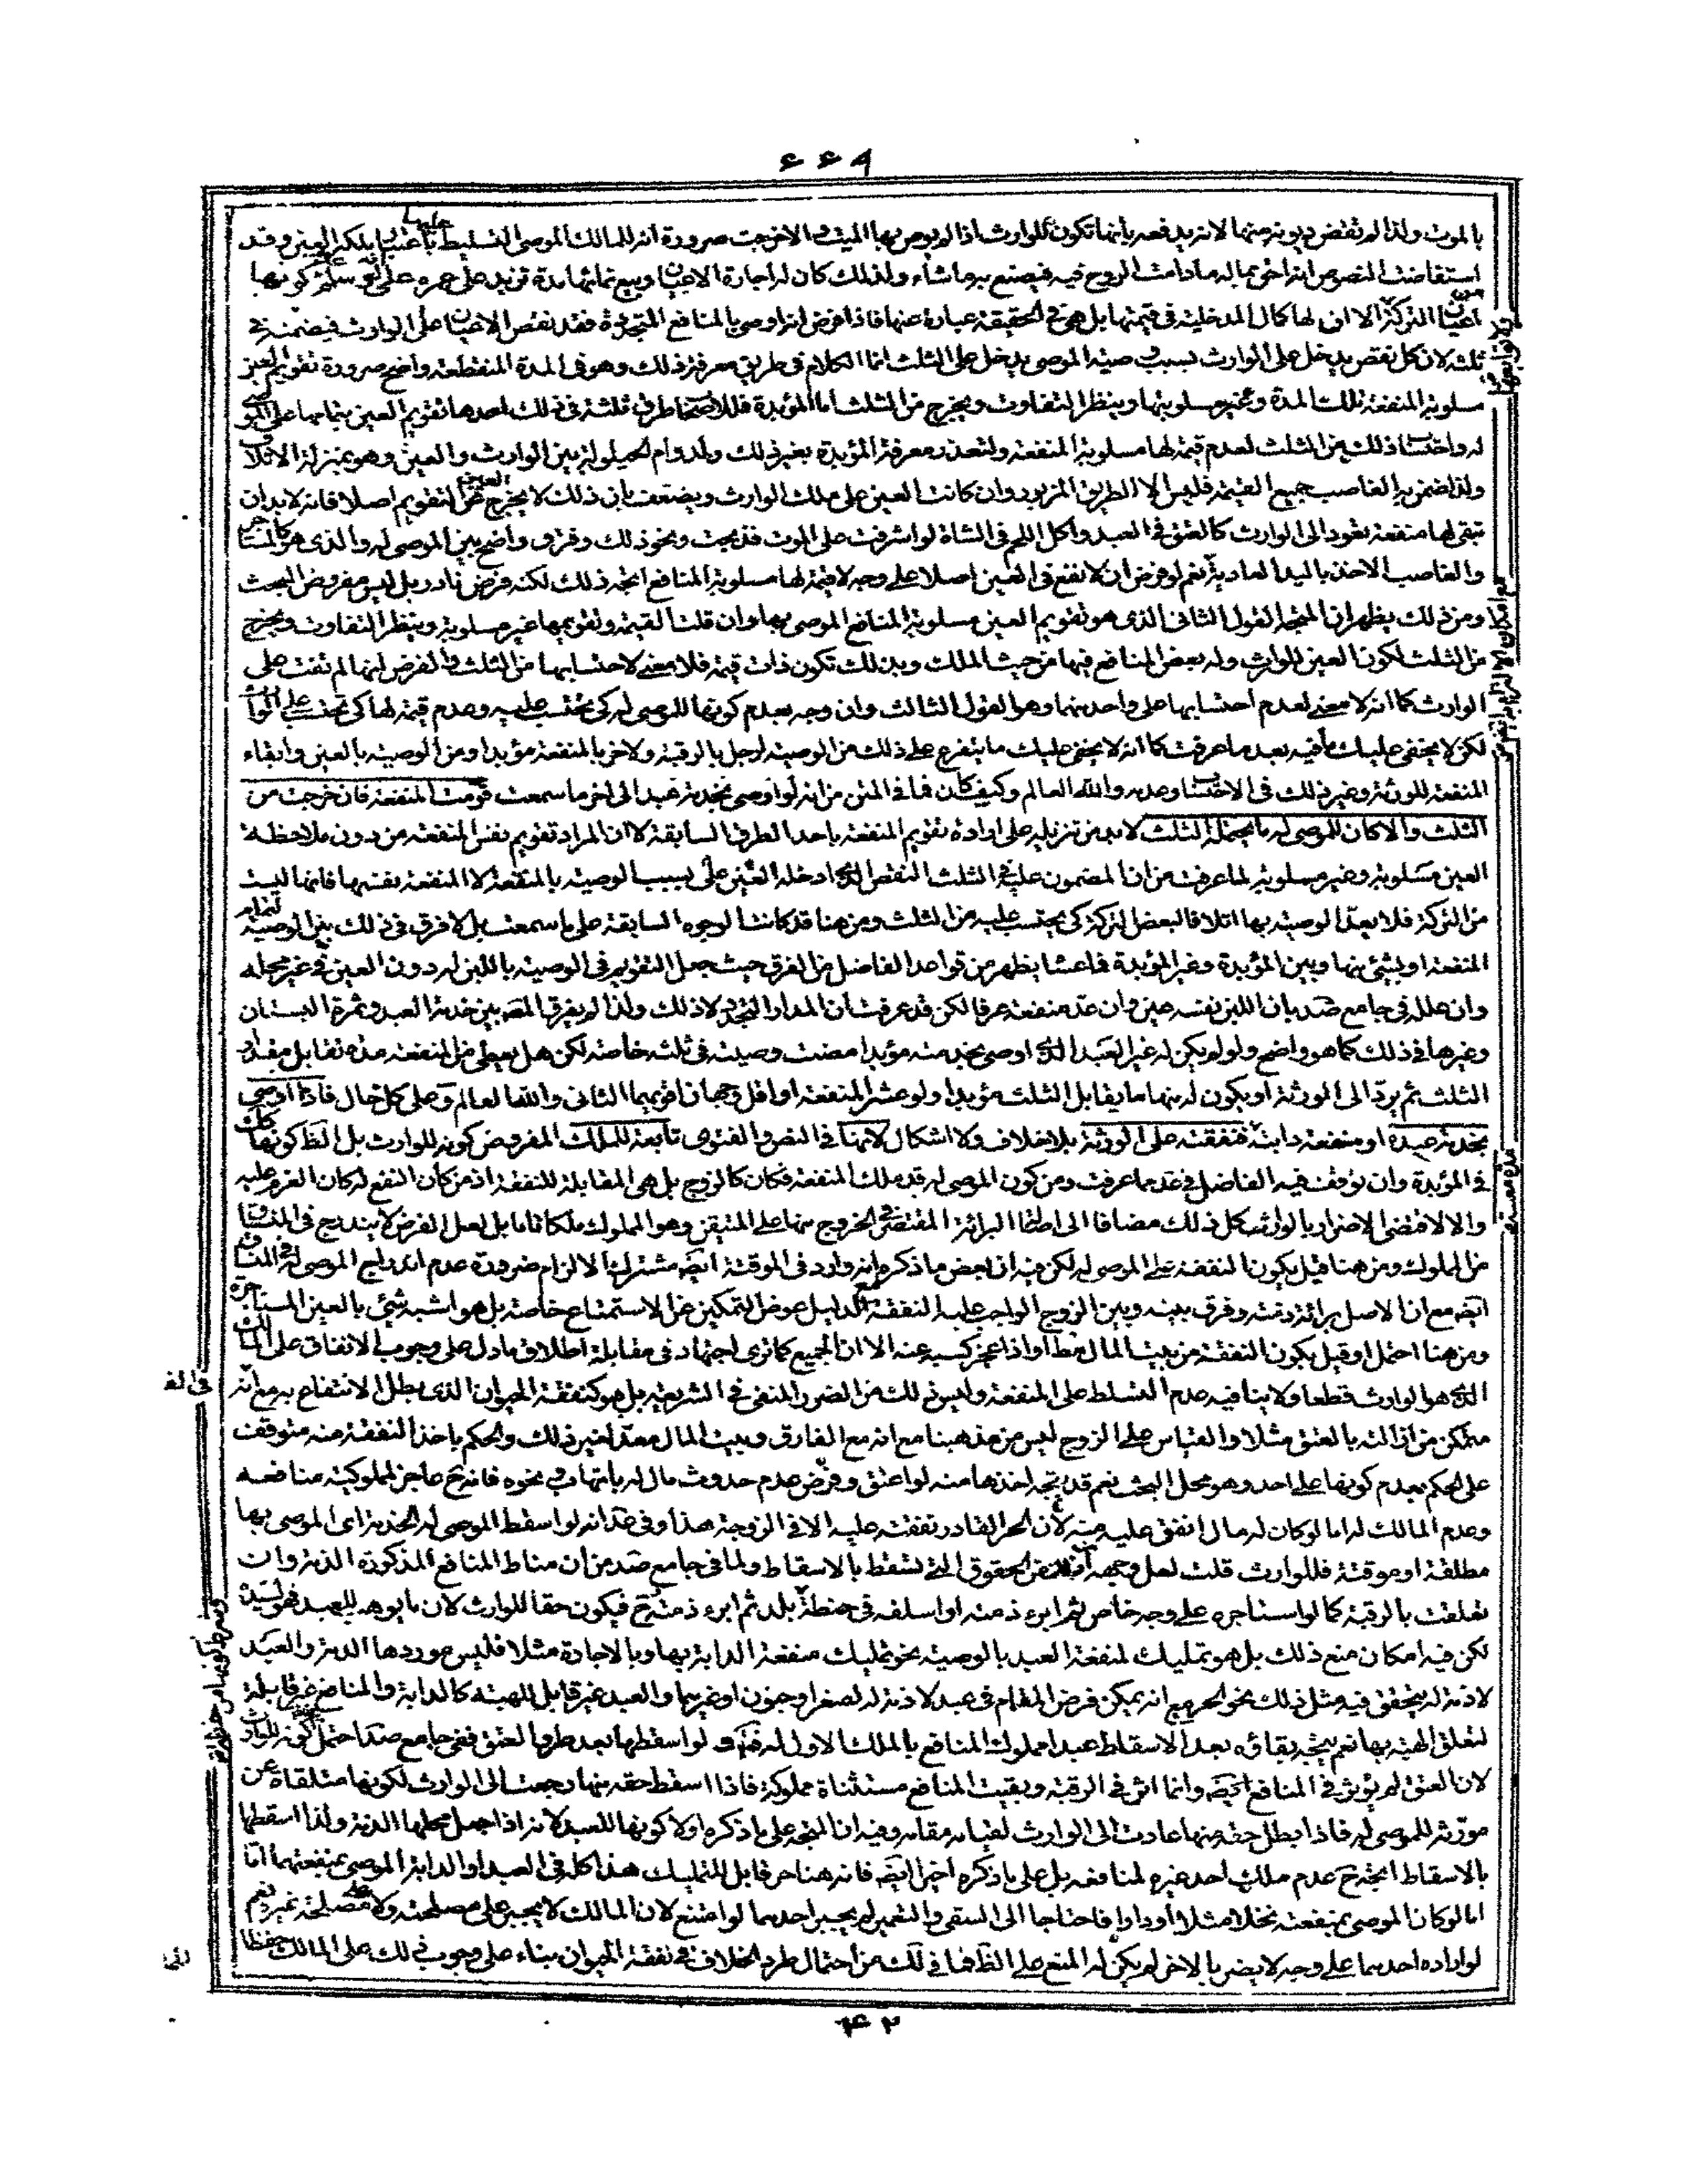 ۶۶۹
بالموت ولذا لم تقض ديونه منها لانه يدفعه بأنها تكون للوارث اذا لم يوص بها الميت والاخرجت ضرورة انه للمالك الموصى التسليط عليها باعتبار ملكه العين وقد
استفاضت النصوص انه احق بماله مادامت الروح فيه فيصنع به ما شاء ولذلك كان له اجارة الاعيان وبيع ثمائها مدة تزيد على عمره على
اعيان التركة الا ان لها كمال المدخلية في قيمتها بل هي في الحقيقة عبارة عنها فاذا فرض انه اوصى بالمنافع المتجددة فقد نقص الاعيان على الوارث فيضمنه في
ثلثه لان كل نقص يدخل على الوارث بسبب وصية الموصى يدخل على الثلث انما الكلام في طريق معرفة ذلك وهو في المدة المنقطعة واضح ضرورة تقويم العين
مسلوبة المنفعة تلك المدة وغير مسلوبتها وينظر التفاوت ويخرج من الثلث اما المؤبدة فللاصحاب طرق ثلثة في ذلك احدها تقويم العين بتمامها على الموصى
له واحتساب ذلك من الثلث لعدم قيمة لها مسلوبة المنفعة ولتعذر معرفة المؤبدة بغير ذلك ولدوام الحيلولة بين الوارث والعين وهو بمنزلة الاتلاف
ولذا ضمن به الغاصب جميع القيمة فليس الا الطريق المزبور وان كانت العين على ملك الوارث ويضعف بأن ذلك لا يخرج العين عن التقويم اصلا فانه لا بد ان
تبقى لها منفعة تعود الى الوارث كالعتق في العبد وأكل اللحم في الشاة لو اشرفت على الموت فذبحت ونحو ذلك وفرق واضح بين الموصى له والذى هو كالمستأجر
والغاصب الاخذ باليد العادية نعم لو فرض ان لا نفع في العين اصلا على وجه لا قيمة لها مسلوبة المنافع اتجه ذلك لكنه فرض نادر بل ليس مفروض البحث
ومن ذلك يظهر ان المتجه القول الثانى الذى هو تقويم العين مسلوبة المنافع الموصى بها وان قلت القيمة وتقويمها غير مسلوبة وينظر التفاوت ويخرج
من الثلث لكون العين للوارث وله بعض المنافع فيها من حيث الملك وبذلك تكون ذات قيمة فلا معنى لاحتسابها من الثلث والفرض انها لم تفت على
الوارث كما انه لا معنى لعدم احتسابها على واحد منهما وهو القول الثالث وان وجه بعدم كونها للموصى له كى تحتسب عليه وعدم قيمة لها كى تحتسب على الوارث
لكن لا يخفى عليك ما فيه بعد ما عرفت كما انه لا يخفى عليك ما يتفرع على ذلك من الوصية لرجل بالرقبة ولاخر بالمنفعة مؤبدا ومن الوصية بالعين وابقاء
المنفعة للورثة وغير ذلك في الاحتساب وعدمه والله العالم وكيف كان فما في المتن من انه لو اوصى بخدمة عبد الى اخر ما سمعت قومت المنفعة فان خرجت من
الثلث والا كان للموصى له ما يحتمله الثلث لابد من تنزيله على ارادة تقويم المنفعة باحد الطرق السابقة لا ان المراد تقويم نفس المنفعة من دون ملاحظة
العين مسلوبة وغير مسلوبة لما عرفت من ان المضمون عليه في الثلث النقص الذى ادخله العين على بسبب الوصية بالمنفعة لا المنفعة نفسها فانها ليست
من التركة فلا يعد الوصية بها اتلافا لبعض التركة كى يحتسب عليه من الثلث ومن هنا قد كانت الوجوه السابقة على ما سمعت بل لا فرق في ذلك بين الوصية بتمام
المنفعة او بشئ منها وبين المؤبدة وغير المؤبدة فاعشا يظهر من قواعد الفاضل من الفرق حيث جعل التقويم في الوصية باللبن له دون العين في غير محله
وان علله في جامع صد بان اللبن نفسه عين وان عد منفعة عرفا لكن قد عرفت ان المدار التجدد لا ذلك ولذا لم يفرق المصه بين خدمة العبد وثمرة البستان
وغيرها في ذلك كما هو واضح ولو لم يكن له غير العبد الذى اوصى بخدمته مؤبدا مضت وصيته في ثلثه خاصة لكن هل يعطى من المنفعة مدة تقابل مقدار
الثلث ثم يرد الى الورثة او يكون له منها ما يقابل الثلث مؤبدا ولو عشر المنفعة او اقل وجهان اقويهما الثانى والله العالم وعلى كل حال فاذا اوصى
بخدمة عبده او منفعة دابته فنفقته على الورثة بلا خلاف ولا اشكال لانها في النص والفتوى تابعة للملك المفروض كونه للوارث بل الظ كونها كذلك
في المؤبدة وان توقف فيه الفاضل في عد مما عرفت ومن كون الموصى له قد ملك المنفعة فكان كالزوج بل هى المقابلة للنفقة اذ من كان النفع له كان الغرم عليه
والا لاقتضى الاضرار بالوارث كل ذلك مضافا الى اصالة البرائة المقتضى الخروج منها على المتيقن وهو المملوك ملكا تاما بل لعل الفرض لا يندرج في المنساق
من المملوك ومن هنا قيل بكون النفقة على الموصى له لكن فيه ان بعض ما ذكره انه وارد في الموقتة ايضه مشترك الالزام ضرورة عدم اندراج الموصى له في المنساق
ايضه مع ان الاصل برائة ذمته وفرق بينه وبين الزوج الواجب عليه النفقة للدليل عوض التمكين من الاستمتاع خاصة بل هو اشبه شئ بالعين المستأجرة
ومن هنا احتمل او قيل بكون النفقة من بيت المال مط او اذا عجز كسبه عنه الا ان الجميع كما ترى اجتهاد في مقابلة اطلاق ما دل على وجوب الانفاق على المالك
الذى هو الوارث قطعا ولا ينافيه عدم التسلط على المنفعة وليس ذلك من الضرر المنفى في الشريعة بل هو كنفقة الحيوان الذى بطل الانتفاع به مع انه
متمكن من ازالته بالعتق مثلا والقياس على الزوج ليس من مذهبنا مع انه مع الفارق وبيت المال معد لغير ذلك والحكم باخذ النفقة منه متوقف
على الحكم بعدم كونها على احد وهو محل البحث نعم قد يتجه اخذها منه لو اعتق وفرض عدم حدوث مال له باتهاب ونحوه فانه ح عاجز لمملوكية منافعه
وعدم المالك له اما لو كان له مال انفق عليه منه لأن الحر القادر نفقته عليه الا في الزوجة هذا وفى عد انه لو اسقط الموصى له الخدمة اى الموصى بها
مطلقة او موقتة فللوارث قلت لعل وجهه انه من الحقوق التى تسقط بالاسقاط ولما في جامع صد من ان مناط المنافع المذكورة الذمة وان
تعلقت بالرقبة كما لو استاجره على وجه خاص ثم ابرء ذمته او اسلفه في حنطة بلد ثم ابرء ذمته ح فيكون حقا للوارث لان ما يوهب للعبد فهو لسيده
لكن فيه امكان منع ذلك بل هو تمليك لمنفعة العبد بالوصية نحو تمليك منفعة الدابة بها وبالاجارة مثلا فليس موردها الذمة والعبد
لا ذمة له يتحقق فيه مثل ذلك نحو الحر مع انه يمكن فرض المقام في عبد لا ذمة له لصغر او جنون او غيرهما والعبد غير قابل للهبة كالدابة والمنافع غير قابلة
لتعلق الهبة بها نعم يتجه بقاؤه بعد الاسقاط عبدا مملوك المنافع بالملك الاول له ولو اسقطها بعد طرو العتق ففى جامع صد احتمل كونه للوارث
لان العتق لم يؤثر في المنافع ايضه وانما اثر في الرقبة وبقيت المنافع مستثناة مملوكة فاذا اسقط حقه منها رجعت الى الوارث لكونها متلقاة عن
مورثه للموصى له فاذا ابطل حقه منها عادت الى الوارث لقيامه مقامه وفيه ان المتجه على ما ذكره اولا كونها للعبد لانه اذا جعل محلها الذمة ولذا اسقطها
بالاسقاط اتجه ح عدم ملك احد غيره لمنافعه بل على ما ذكره اخيرا ايضه فانه هنا حر قابل للتمليك هذا كله في العبد او الدابة الموصى بمنفعتهما اما
اما لو كان الموصى بمنفعته نخلا مثلا او دارا فاحتاجا الى السقى والتعمير لم يجبر احدهما لو امتنع لان المالك لا يجبر على مصلحته ولا على مصلحة غيره نعم
لو اراده احدهما على وجه لا يضر بالاخر لم يكن له المنع على الظ فما في لك من احتمال طرد الخلاف في نفقة الحيوان بناء على وجوب ذلك على المالك حفظا